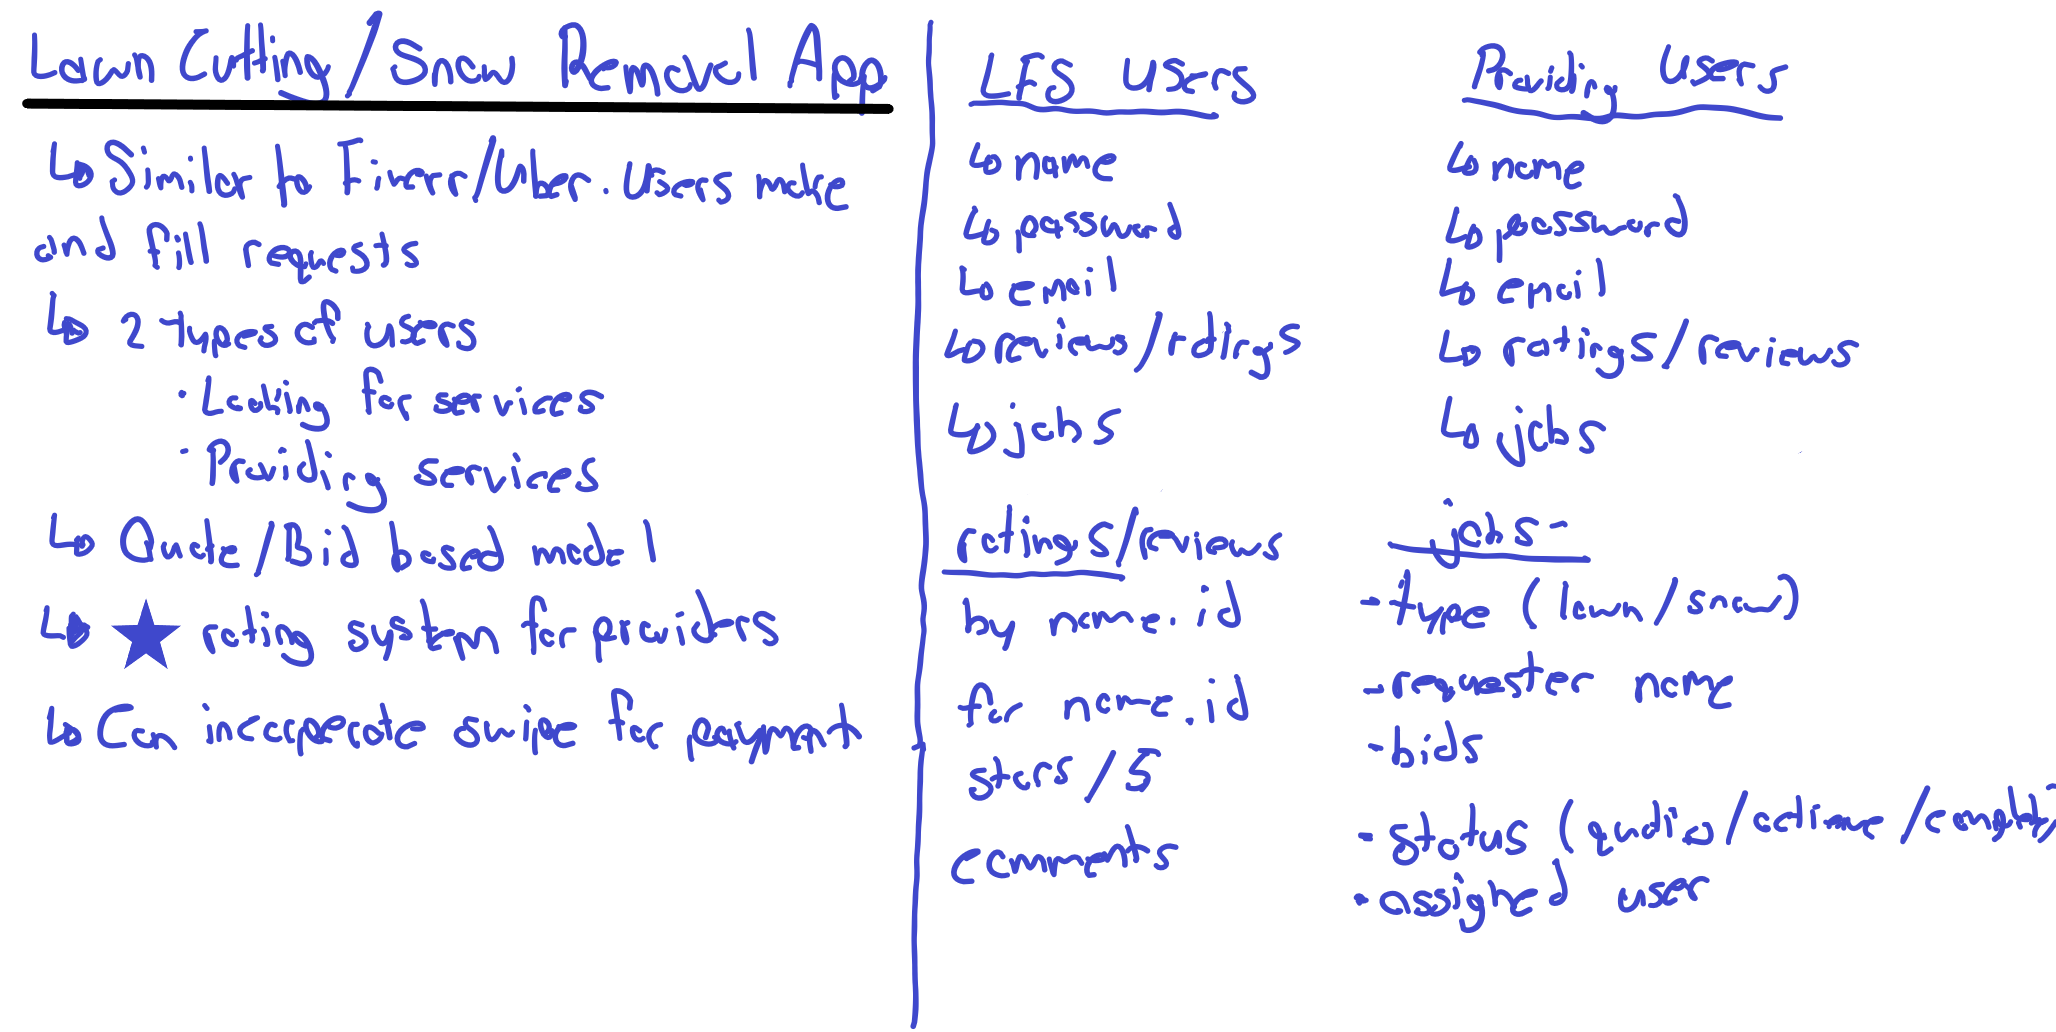 Lawn Cutting/Snow Removal App
↳ Similar to Fiverr/Uber. Users make
and fill requests
↳ 2 types of users
• Looking for services
• Providing services
↳ Quote/Bid based model
↳ ★ rating system for providers
↳ Can incorperate swipe for payment
LFS Users
↳ name
↳ password
↳ email
↳ reviews/ratings
↳ jobs
ratings/reviews
by name.id
for name.id
stars/5
comments
Providing Users
↳ name
↳ password
↳ email
↳ ratings/reviews
↳ jobs
jobs-
-type (lawn/snow)
-requester name
-bids
-status (
• assigned user